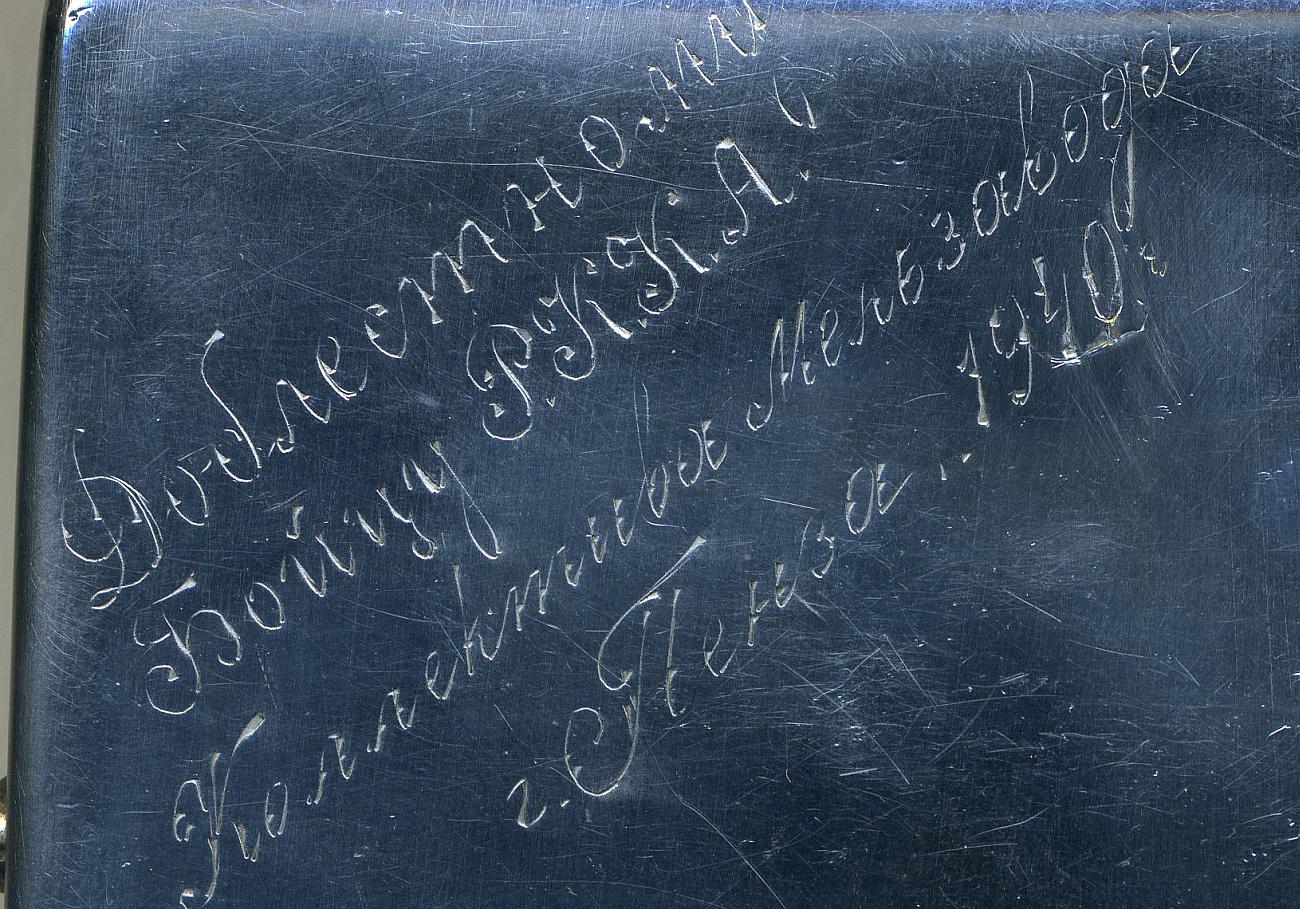 Доблестному
Бойцу Р.К.К.А.
Коллектив Мельзавода
г. Пенза. 1940 г.